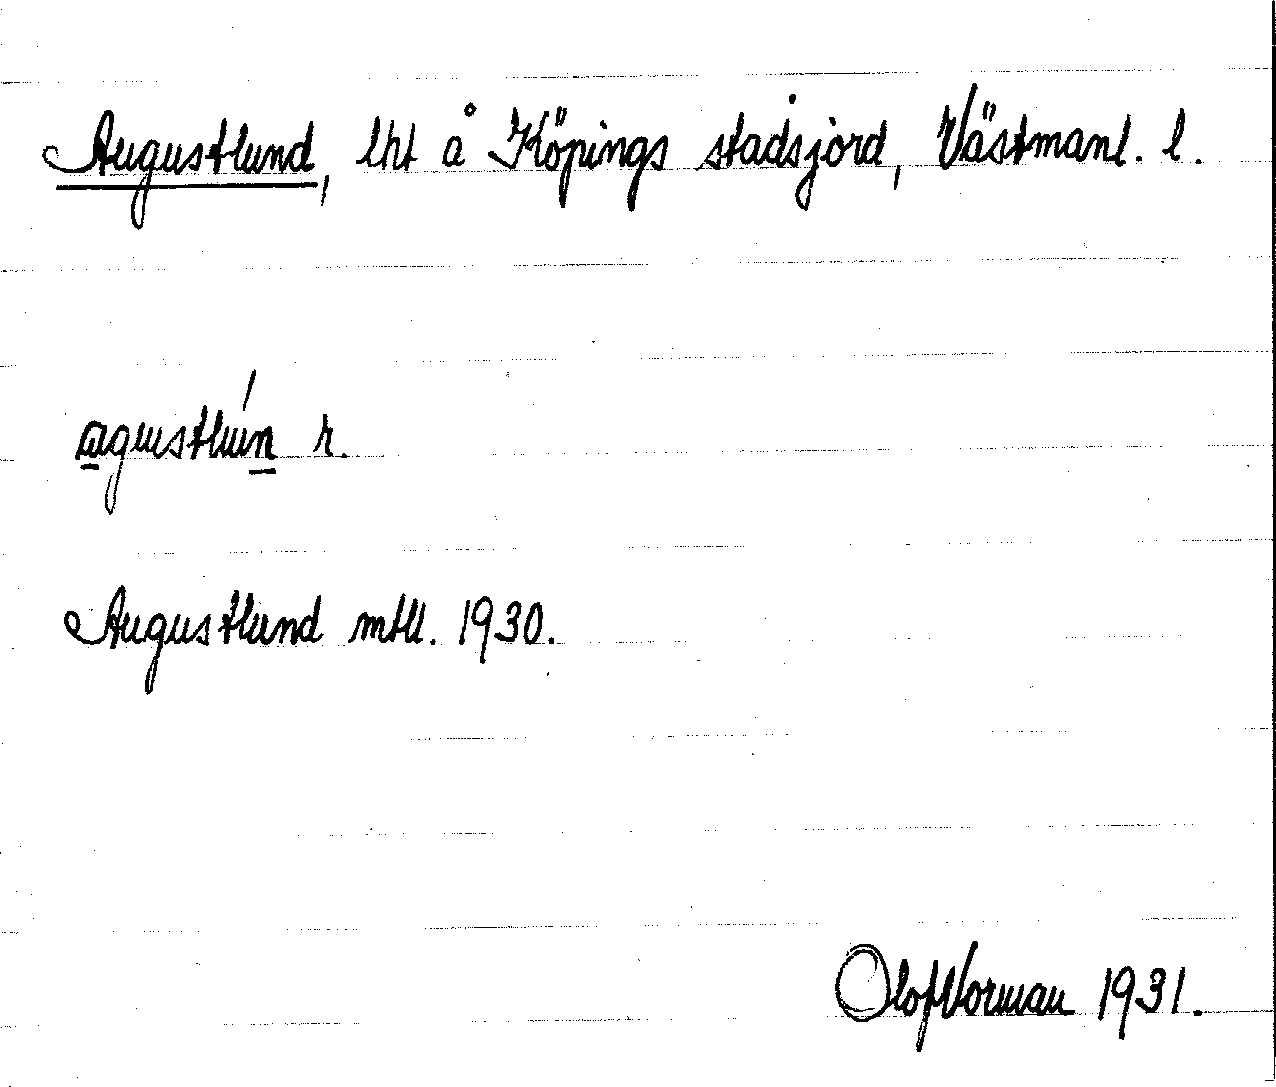 Augustlund, lht å Köpings stadsjord, Västmanl. l.
agustlún r.
Augustlund mtll. 1930.
Olof Vorman 1931.